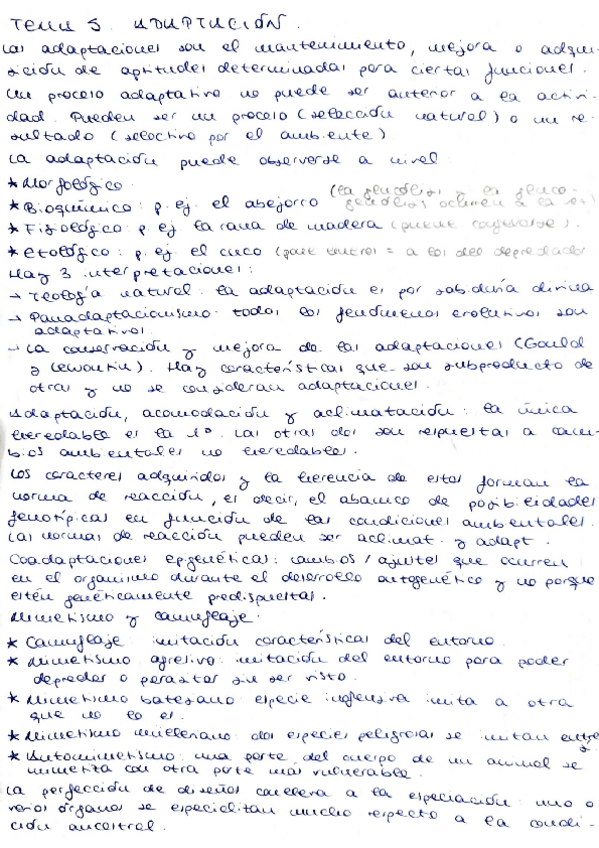 TEMA 5. ADAPTACIÓN.
Las adaptaciones son el mantenimiento, mejora o adqui-
sición de aptitudes determinadas para ciertas funciones.
Un proceso adaptativo no puede ser anterior a la activi-
dad. Pueden ser un proceso (selección natural) o un re-
sultado (selectivo por el ambiente)
La adaptación puede observarse a nivel
* Morfológico
* Bioquímico: p. ej. el abejorro (la glucólisis y la gluco-
* Fisiológico: p. ej la rana de madera (puede congelarse).
* Etológico: p. ej. el cuco
Hay 3 interpretaciones:
→ Teología natural: la adaptación es por sabiduría divina
→ Panadaptacionismo: todos los fenómenos evolutivos son
adaptativos.
→ La conservación y mejora de las adaptaciones (Gould
y Lewontin). Hay características que son subproducto de
otras y no se consideran adaptaciones.
Adaptación, acomodación y aclimatación: la única
heredable es la 1ª. Las otras dos son respuestas a cam-
bios ambientales no heredables.
Los caracteres adquiridos y la herencia de estos forman la
norma de reacción, es decir, el abanico de posibilidades
fenotípicas en función de las condiciones ambientales.
Las normas de reacción pueden ser aclimat. y adapt.
Coadaptaciones epigenéticas: cambios / ajustes que ocurren
en el organismo durante el desarrollo ontogenético y no porque
estén genéticamente predispuestas.
Mimetismo y camuflaje:
* Camuflaje: imitación características del entorno
* Mimetismo agresivo: imitación del entorno para poder
depredar o parasitar sin ser visto.
* Mimetismo batesiano: especie inofensiva imita a otra
que no lo es.
* Mimetismo mülleriano: dos especies peligrosas se imitan entre
* Automimetismo: una parte del cuerpo de un animal se
mimetiza con otra parte más vulnerable.
La perfección de diseños conlleva a la especiación: uno o
varios órganos se especializan mucho respecto a la condi-
ción ancestral.